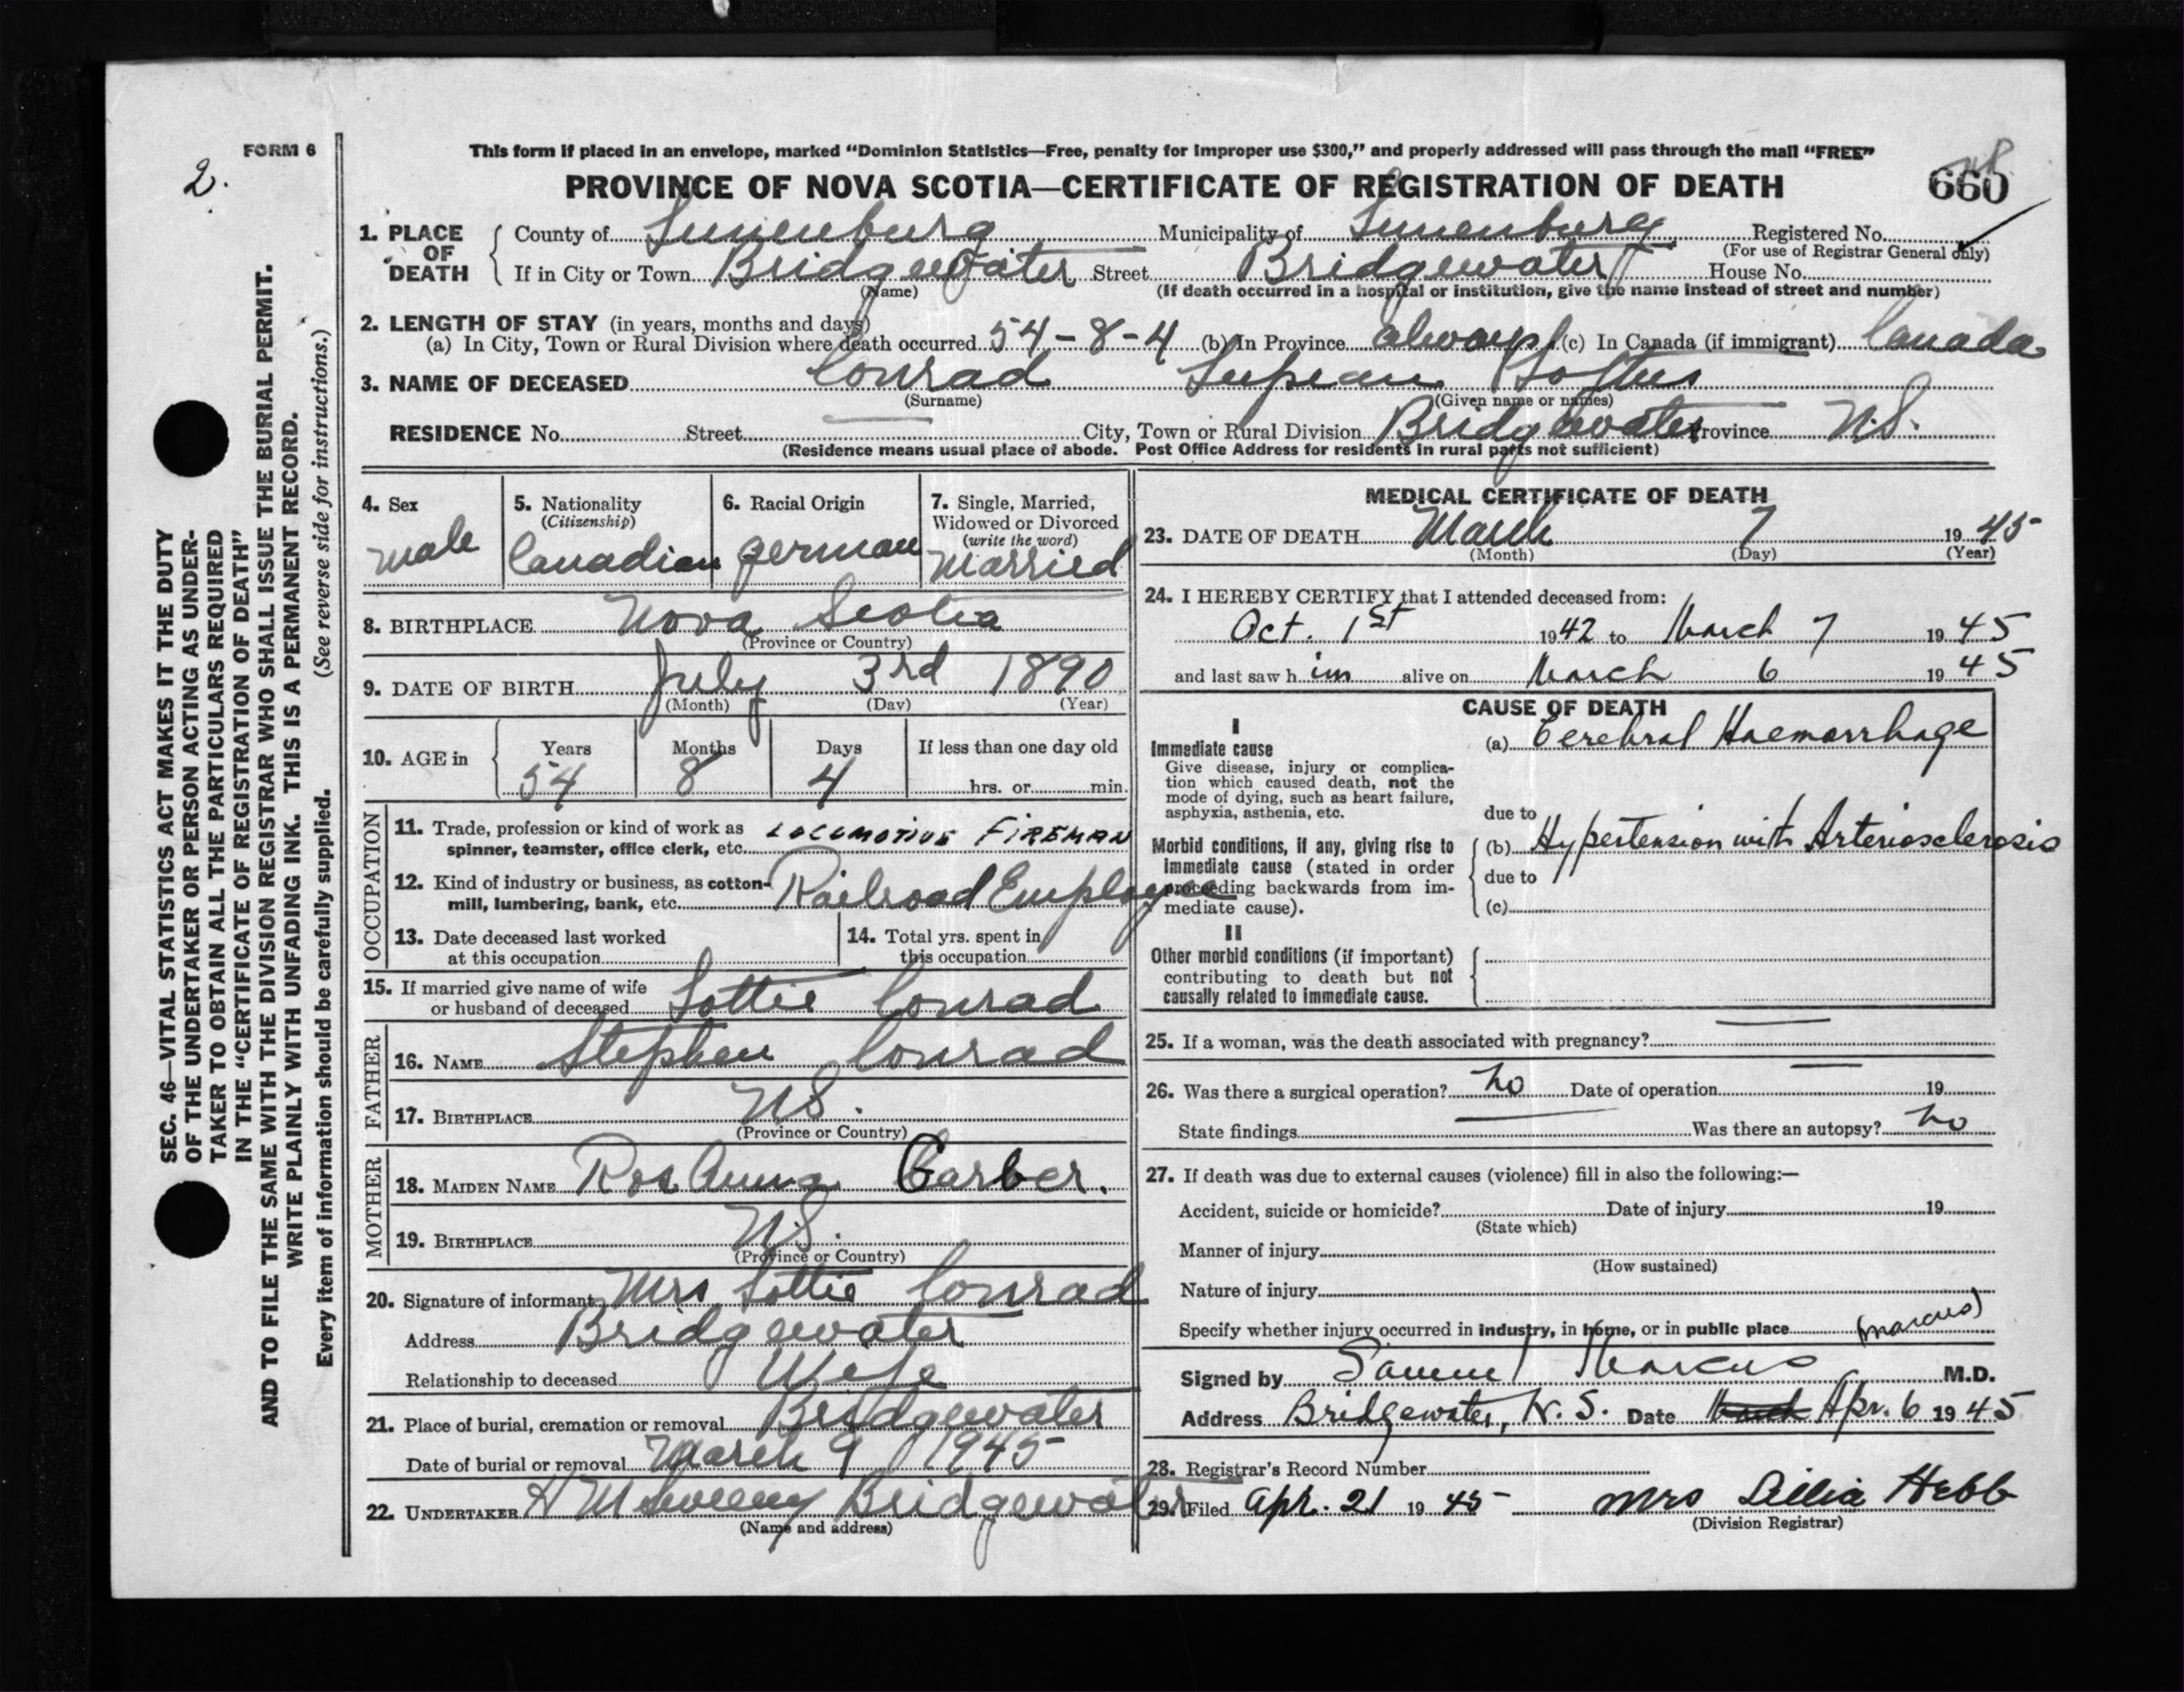 FORM 6
2.
This form if placed in an envelope, marked “Dominion Statistics—Free, penalty for improper use $300,” and properly addressed will pass through the mail “FREE”
PROVINCE OF NOVA SCOTIA—CERTIFICATE OF REGISTRATION OF DEATH
660
1. PLACE OF DEATH { County of Lunenburg Municipality of Lunenburg Registered No.
(For use of Registrar General only)
If in City or Town Bridgewater Street Bridgewater House No.
(Name) (If death occurred in a hospital or institution, give the name instead of street and number)
2. LENGTH OF STAY (in years, months and days)
(a) In City, Town or Rural Division where death occurred 54-8-4 (b) In Province always (c) In Canada (if immigrant) Canada
3. NAME OF DECEASED Conrad Loftus
(Surname) (Given name or names)
RESIDENCE No. Street City, Town or Rural Division Bridgewater Province N.S.
(Residence means usual place of abode. Post Office Address for residents in rural parts not sufficient)
4. Sex male
5. Nationality (Citizenship) Canadian
6. Racial Origin german
7. Single, Married, Widowed or Divorced (write the word) Married
8. BIRTHPLACE Nova Scotia
(Province or Country)
9. DATE OF BIRTH July 3rd 1890
(Month) (Day) (Year)
10. AGE in { Years Months Days If less than one day old
54 8 4 hrs. or min.
OCCUPATION
11. Trade, profession or kind of work as LOCOMOTIVE FIREMAN
spinner, teamster, office clerk, etc.
12. Kind of industry or business, as cotton- Railroad Employee
mill, lumbering, bank, etc.
13. Date deceased last worked at this occupation
14. Total yrs. spent in this occupation
15. If married give name of wife
or husband of deceased Lottie Conrad
FATHER
16. NAME Stephen Conrad
17. BIRTHPLACE N.S.
(Province or Country)
MOTHER
18. MAIDEN NAME RosAnna Garber.
19. BIRTHPLACE N.S.
(Province or Country)
20. Signature of informant Mrs Lottie Conrad
Address Bridgewater
Relationship to deceased Wife
21. Place of burial, cremation or removal Bridgewater
Date of burial or removal March 9 1945
22. UNDERTAKER H McSweeny Bridgewater
(Name and address)
MEDICAL CERTIFICATE OF DEATH
23. DATE OF DEATH March 7 1945
(Month) (Day) (Year)
24. I HEREBY CERTIFY that I attended deceased from:
Oct. 1st 1942 to March 7 1945
and last saw h im alive on March 6 1945
CAUSE OF DEATH
I
Immediate cause (a) Cerebral Haemorrhage
Give disease, injury or complica-
tion which caused death, not the
mode of dying, such as heart failure,
asphyxia, asthenia, etc. due to
Morbid conditions, if any, giving rise to (b) Hypertension with Arteriosclerosis
immediate cause (stated in order
proceeding backwards from im- due to
mediate cause). (c)
II
Other morbid conditions (if important)
contributing to death but not
causally related to immediate cause.
25. If a woman, was the death associated with pregnancy?
26. Was there a surgical operation? no Date of operation 19
State findings Was there an autopsy? no
27. If death was due to external causes (violence) fill in also the following:—
Accident, suicide or homicide? Date of injury 19
(State which)
Manner of injury
(How sustained)
Nature of injury
Specify whether injury occurred in industry, in home, or in public place (marcus)
Signed by Samuel Marcus M.D.
Address Bridgewater, N.S. Date March Apr. 6 1945
28. Registrar's Record Number
29. Filed Apr. 21 1945 Mrs Lillia Hebb
(Division Registrar)
SEC. 46—VITAL STATISTICS ACT MAKES IT THE DUTY
OF THE UNDERTAKER OR PERSON ACTING AS UNDER-
TAKER TO OBTAIN ALL THE PARTICULARS REQUIRED
IN THE “CERTIFICATE OF REGISTRATION OF DEATH”
AND TO FILE THE SAME WITH THE DIVISION REGISTRAR WHO SHALL ISSUE THE BURIAL PERMIT.
WRITE PLAINLY WITH UNFADING INK. THIS IS A PERMANENT RECORD.
Every item of information should be carefully supplied. (See reverse side for instructions.)